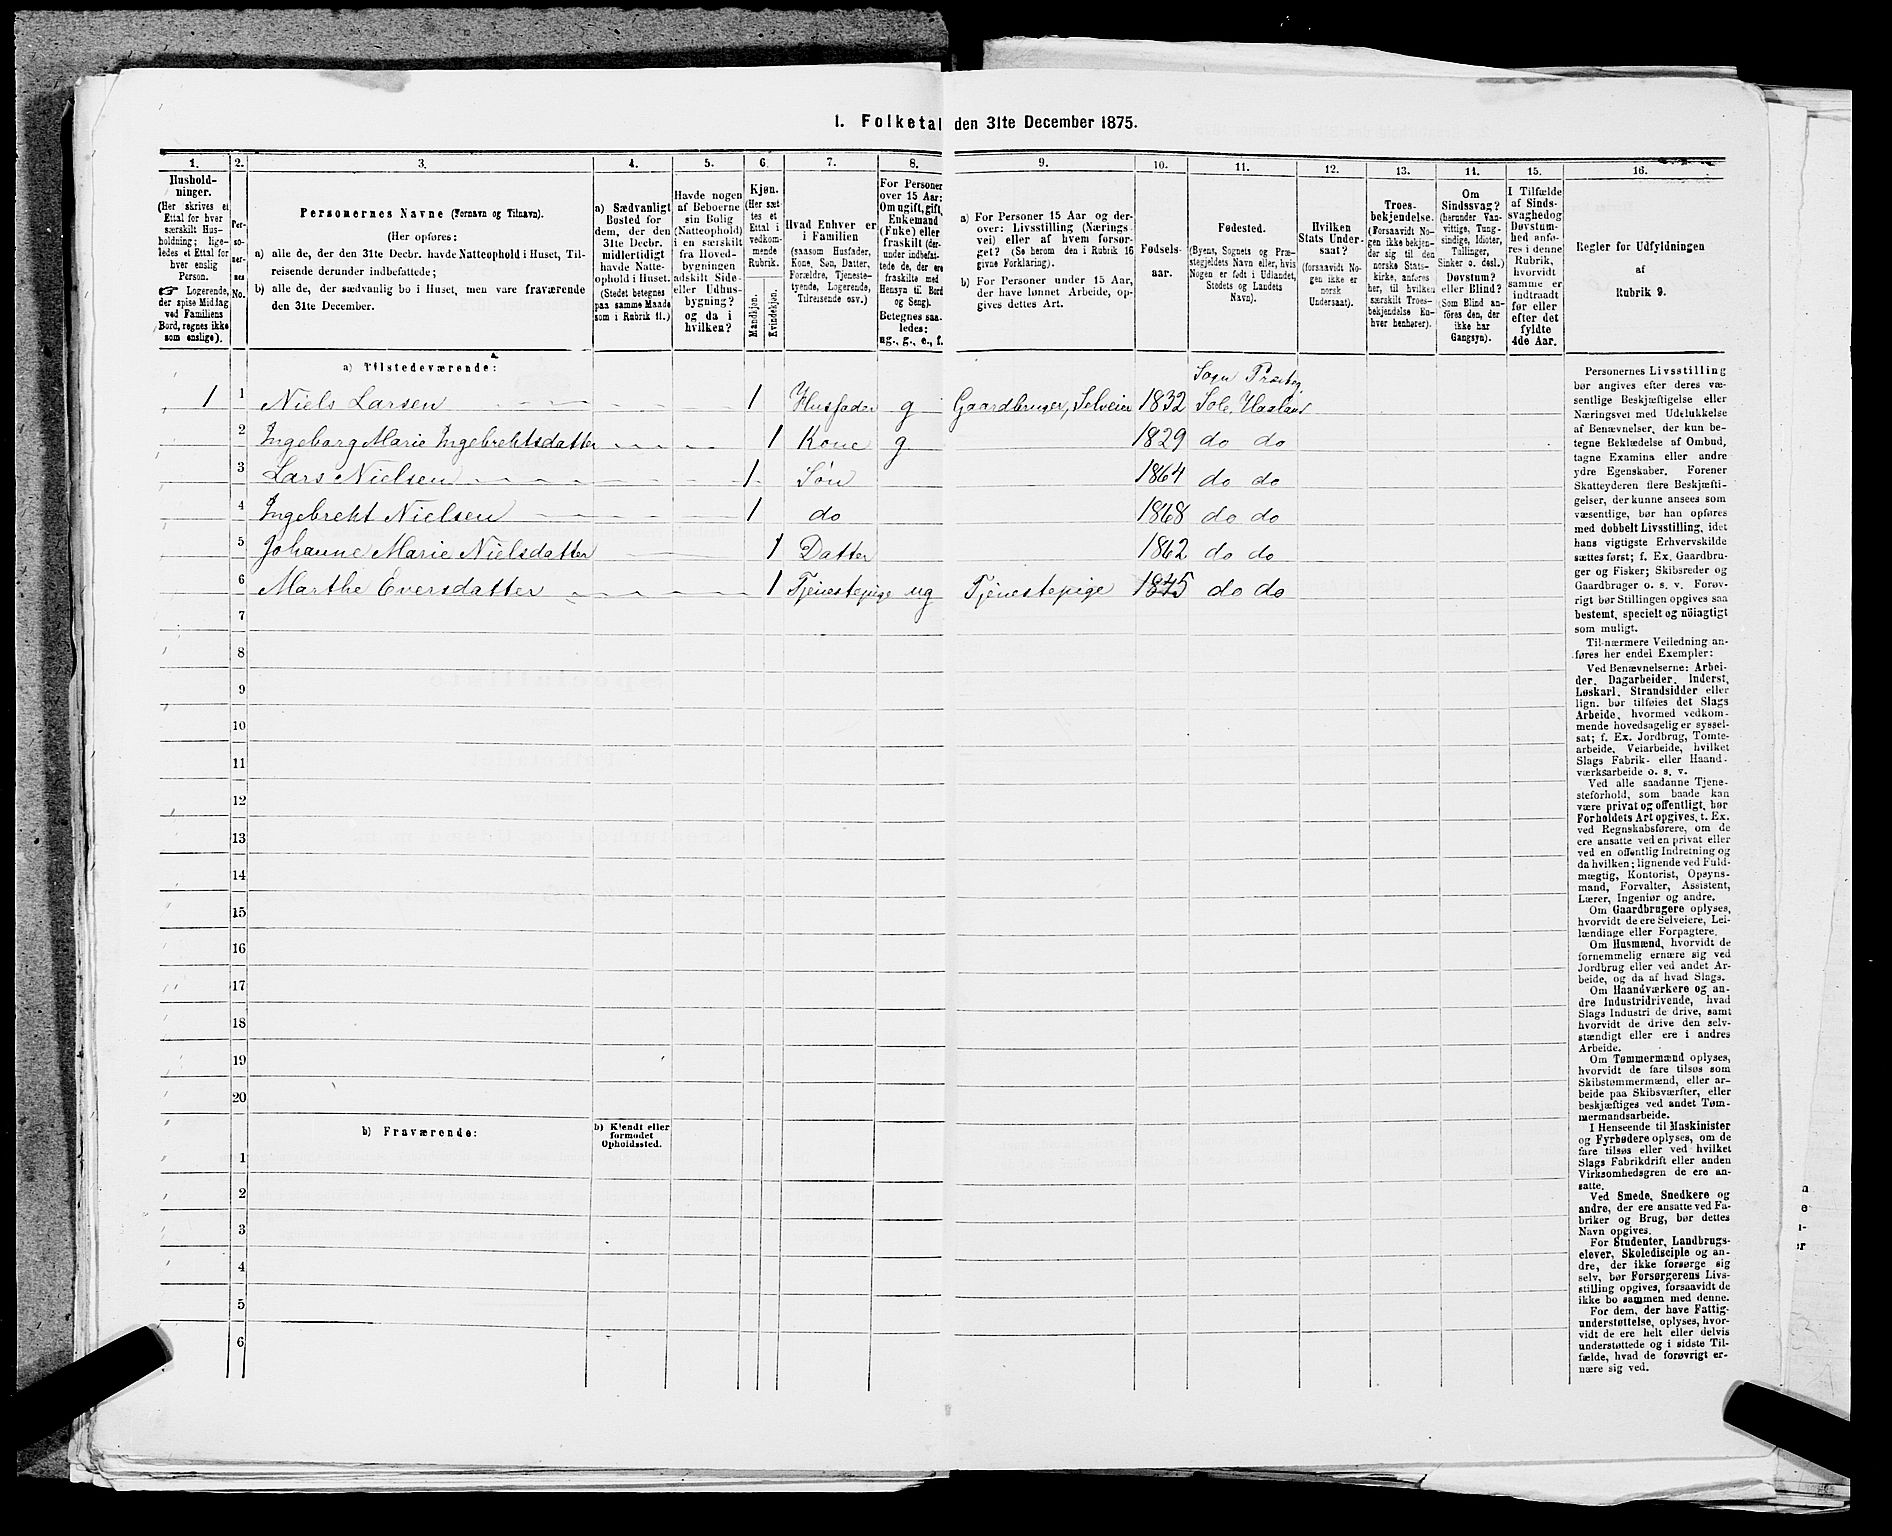 1. Folketal den 31te December 1875.
1. 2. 3. 4. 5. 6. 7. 8. 9. 10. 11. 12. 13. 14. 15. 16.
Hushold-
ninger.
(Her skrives et
Ettal for hver
særskilt Hus-
holdning; lige-
ledes et Ettal
for hver enslig
Person.
☞ Logerende,
der spise Middag
ved Familiens
Bord, regnes ikke
som enslige).
Per-
so-
ner-
nes
No.
Personernes Navne (Fornavn og Tilnavn).
(Her opføres:
a) alle de, der den 31te Decbr. havde Natteophold i Huset, Til-
reisende derunder indbefattede;
b) alle de, der sædvanlig bo i Huset, men vare fraværende
den 31te December.
a) Sædvanligt
Bosted for
dem, der den
31te Decbr.
midlertidigt
havde Natte-
ophold i Huset.
(Stedet betegnes
paa samme Maade
som i Rubrik 11.)
Havde nogen
af Beboerne
sin Bolig
(Natteophold)
i en særskilt
fra Hoved-
bygningen
adskilt Side-
eller Udhus-
bygning?
og da i
hvilken?
Kjøn.
(Her sæt-
tes et
Ettal i
vedkom-
mende
Rubrik.
Mandkjøn.
Kvindekjøn.
Hvad Enhver er
i Familien
(saasom Husfader,
Kone, Søn, Datter,
Forældre, Tjeneste-
tyende, Logerende,
Tilreisende osv.)
For Personer
over 15 Aar:
Om ugift, gift,
Enkemand
(Enke) eller
fraskilt (der-
under indbefat-
tede de, der ere
fraskilte med
Hensyn til Bord
og Seng).
Betegnes saa-
ledes:
ug., g., e., f.
a) For Personer 15 Aar og der-
over: Livsstilling (Nærings-
vei) eller af hvem forsør-
get? (Se herom den i Rubrik 16
givne Forklaring).
b) For Personer under 15 Aar,
der have lønnet Arbeide, op-
gives dettes Art.
Fødsels-
aar.
Fødested.
(Byens, Sognets og Præ-
stegjeldets Navn eller, hvis
Nogen er født i Udlandet,
Stedets og Landets
Navn).
Hvilken
Stats Under-
saat?
(forsaavidt No-
gen ikke er
norsk
Undersaat).
Troes-
bekjendelse.
(Forsaavidt No-
gen ikke bekjen-
der sig til den
norske Stats-
kirke, anføres
her, til hvilken
særskilt Troes-
bekjendelse En-
hver henhører).
Om
Sindssvag?
(herunder Van-
vittige, Tung-
sindige, Idioter,
Tullinger,
Sinker o. desl.).
Døvstum?
eller Blind?
(Som Blind an-
føres den, der
ikke har
Gangsyn).
I Tilfælde
af Sinds-
svaghed og
Døvstum-
hed anfø-
res i denne
Rubrik,
hvorvidt
samme er
indtraadt
før eller
efter det
fyldte
4de Aar.
Regler for Udfyldningen
af
Rubrik 9.
a) Tilstedeværende:
Sogn Præsteg
1 1 Niels Larsen 1 Husfader g Gaardbruger, Selveier 1832 Sole, Haaland
2 Ingeborg Marie Ingebrektsdatter 1 Kone g 1829 do do
3 Lars Nielsen 1 Søn 1864 do do
4 Ingebrekt Nielsen 1 do 1868 do do
5 Johanne Marie Nielsdatter 1 Datter 1862 do do
6 Marthe Eversdatter 1 Tjenestepige ug Tjenestepige 1845 do do
7
8
9
10
11
12
13
14
15
16
17
18
19
20
b) Fraværende:
b) Kjendt eller
formodet
Opholdssted.
1
2
3
4
5
6
Personernes Livsstilling
bør angives efter deres væ-
sentlige Beskjæftigelse eller
Næringsvei med Udelukkelse
af Benævnelser, der kun be-
tegne Beklædelse af Ombud,
tagne Examina eller andre
ydre Egenskaber. Forener
Skatteyderen flere Beskjæfti-
gelser, der kunne ansees som
væsentlige, bør han opføres
med dobbelt Livsstilling, idet
hans vigtigste Erhvervskilde
sættes først; f. Ex. Gaardbru-
ger og Fisker; Skibsreder og
Gaardbruger o. s. v. Forøv-
rigt bør Stillingen opgives saa
bestemt, specielt og nöiagtigt
som muligt.
Til nærmere Veiledning an-
føres her endel Exempler:
Ved Benævnelserne: Arbei-
der, Dagarbeider, Inderst,
Løskarl, Strandsidder eller
lign. bør tilføies det Slags
Arbeide, hvormed vedkom-
mende hovedsagelig er syssel-
sat; f. Ex. Jordbrug, Tomte-
arbeide, Veiarbeide, hvilket
Slags Fabrik- eller Haand-
værksarbeide o. s. v.
Ved alle saadanne Tjene-
steforhold, som baade kan
være privat og offentligt, bør
Forholdets Art opgives, t. Ex.
ved Regnskabsførere, om de
ere ansatte ved en privat eller
ved en offentlig Indretning og
da hvilken; lignende ved Fuld-
mægtig, Kontorist, Opsyns-
mand, Forvalter, Assistent,
Lærer, Ingeniør og andre.
Om Gaardbrugere oplyses,
hvorvidt de ere Selveiere, Lei-
lændinge eller Forpagtere.
Om Husmænd, hvorvidt de
fornemmelig ernære sig ved
Jordbrug eller ved andet Ar-
beide, og da af hvad Slags.
Om Haandværkere og an-
dre Industridrivende, hvad
Slags Industri de drive, samt
hvorvidt de drive den selv-
stændigt eller ere i andres
Arbeide.
Om Tømmermænd oplyses,
hvorvidt de fare tilsøs som
Skibstømmermænd, eller ar-
beide paa Skibsværfter, eller
beskjæftiges ved andet Tøm-
mermandsarbeide.
I Henseende til Maskinister
og Fyrbødere oplyses, om de
fare tilsøs eller ved hvilket
Slags Fabrikdrift eller anden
Virksomhedsgren de ere an-
satte.
Ved Smede, Snedkere og
andre, der ere ansatte ved Fa-
briker og Brug, bør dettes
Navn opgives.
For Studenter, Landbrugs-
elever, Skoledisciple og an-
dre, der ikke forsørge sig
selv, bør Forsørgerens Livs-
stilling opgives, forsaavidt de
ikke bo sammen med denne.
For dem, der have Fattig-
understøttelse, oplyses, hvor-
vidt de ere helt eller delvis
understøttede og i sidste Til-
fælde, hvad de forøvrigt er-
nære sig ved.